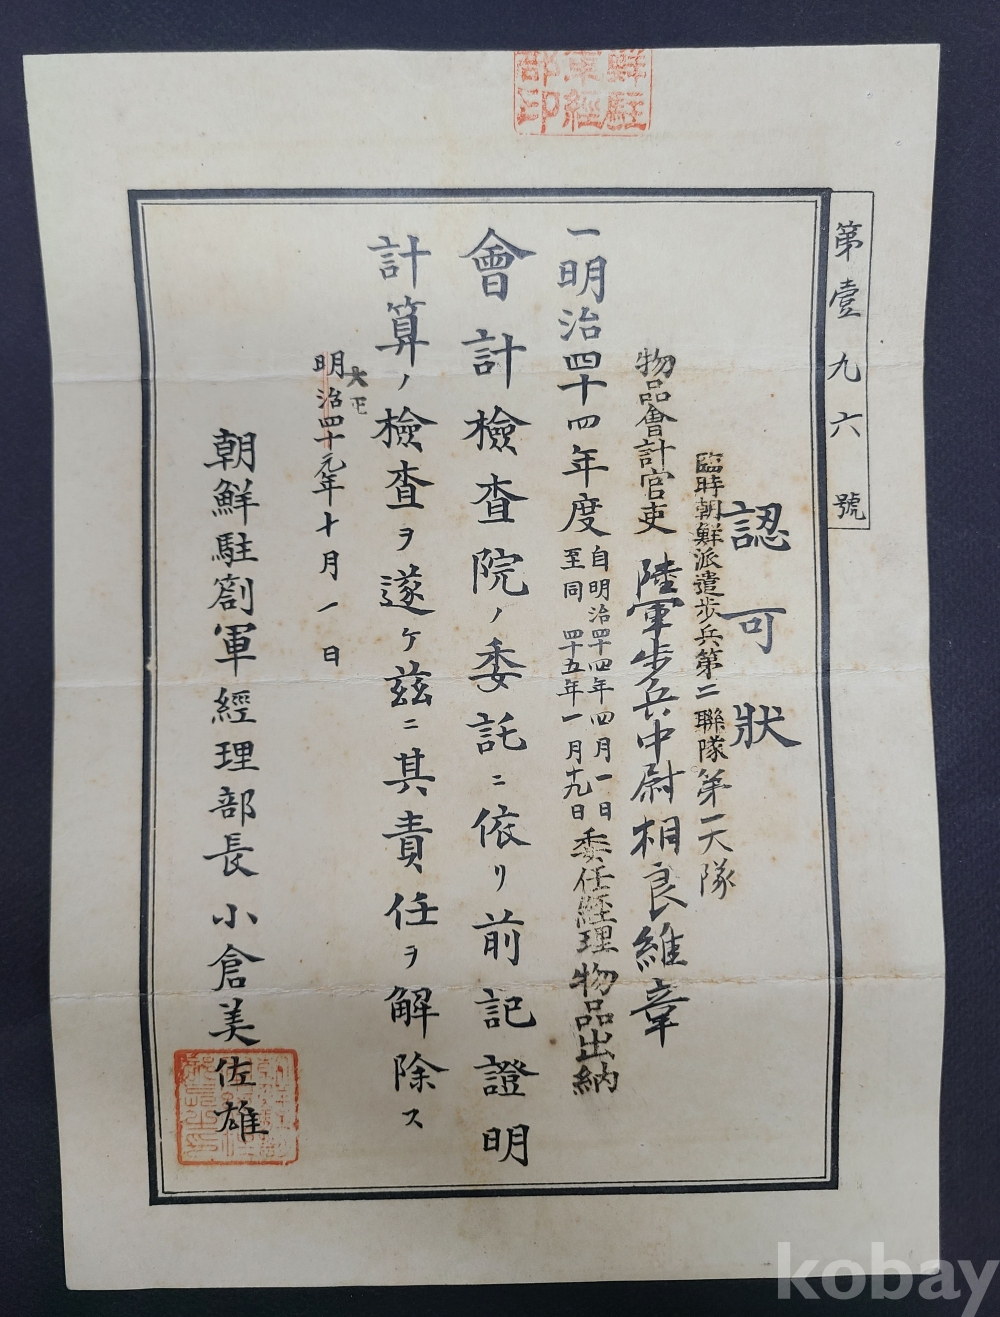 第壹九六號
認可狀
臨時朝鮮派遣步兵第二聯隊第一大隊
物品會計官吏 陸軍步兵中尉相良維章
一明治四十四年度 自明治四十四年四月一日
至同 四十五年一月十九日 委任經理物品出納
會計檢查院ノ委託ニ依リ前記證明
計算ノ檢查ヲ遂ケ茲ニ其責任ヲ解除ス
大正
明治四十元年十月一日
朝鮮駐劄軍經理部長小倉美佐雄
鮮駐
軍經
部印
kobay